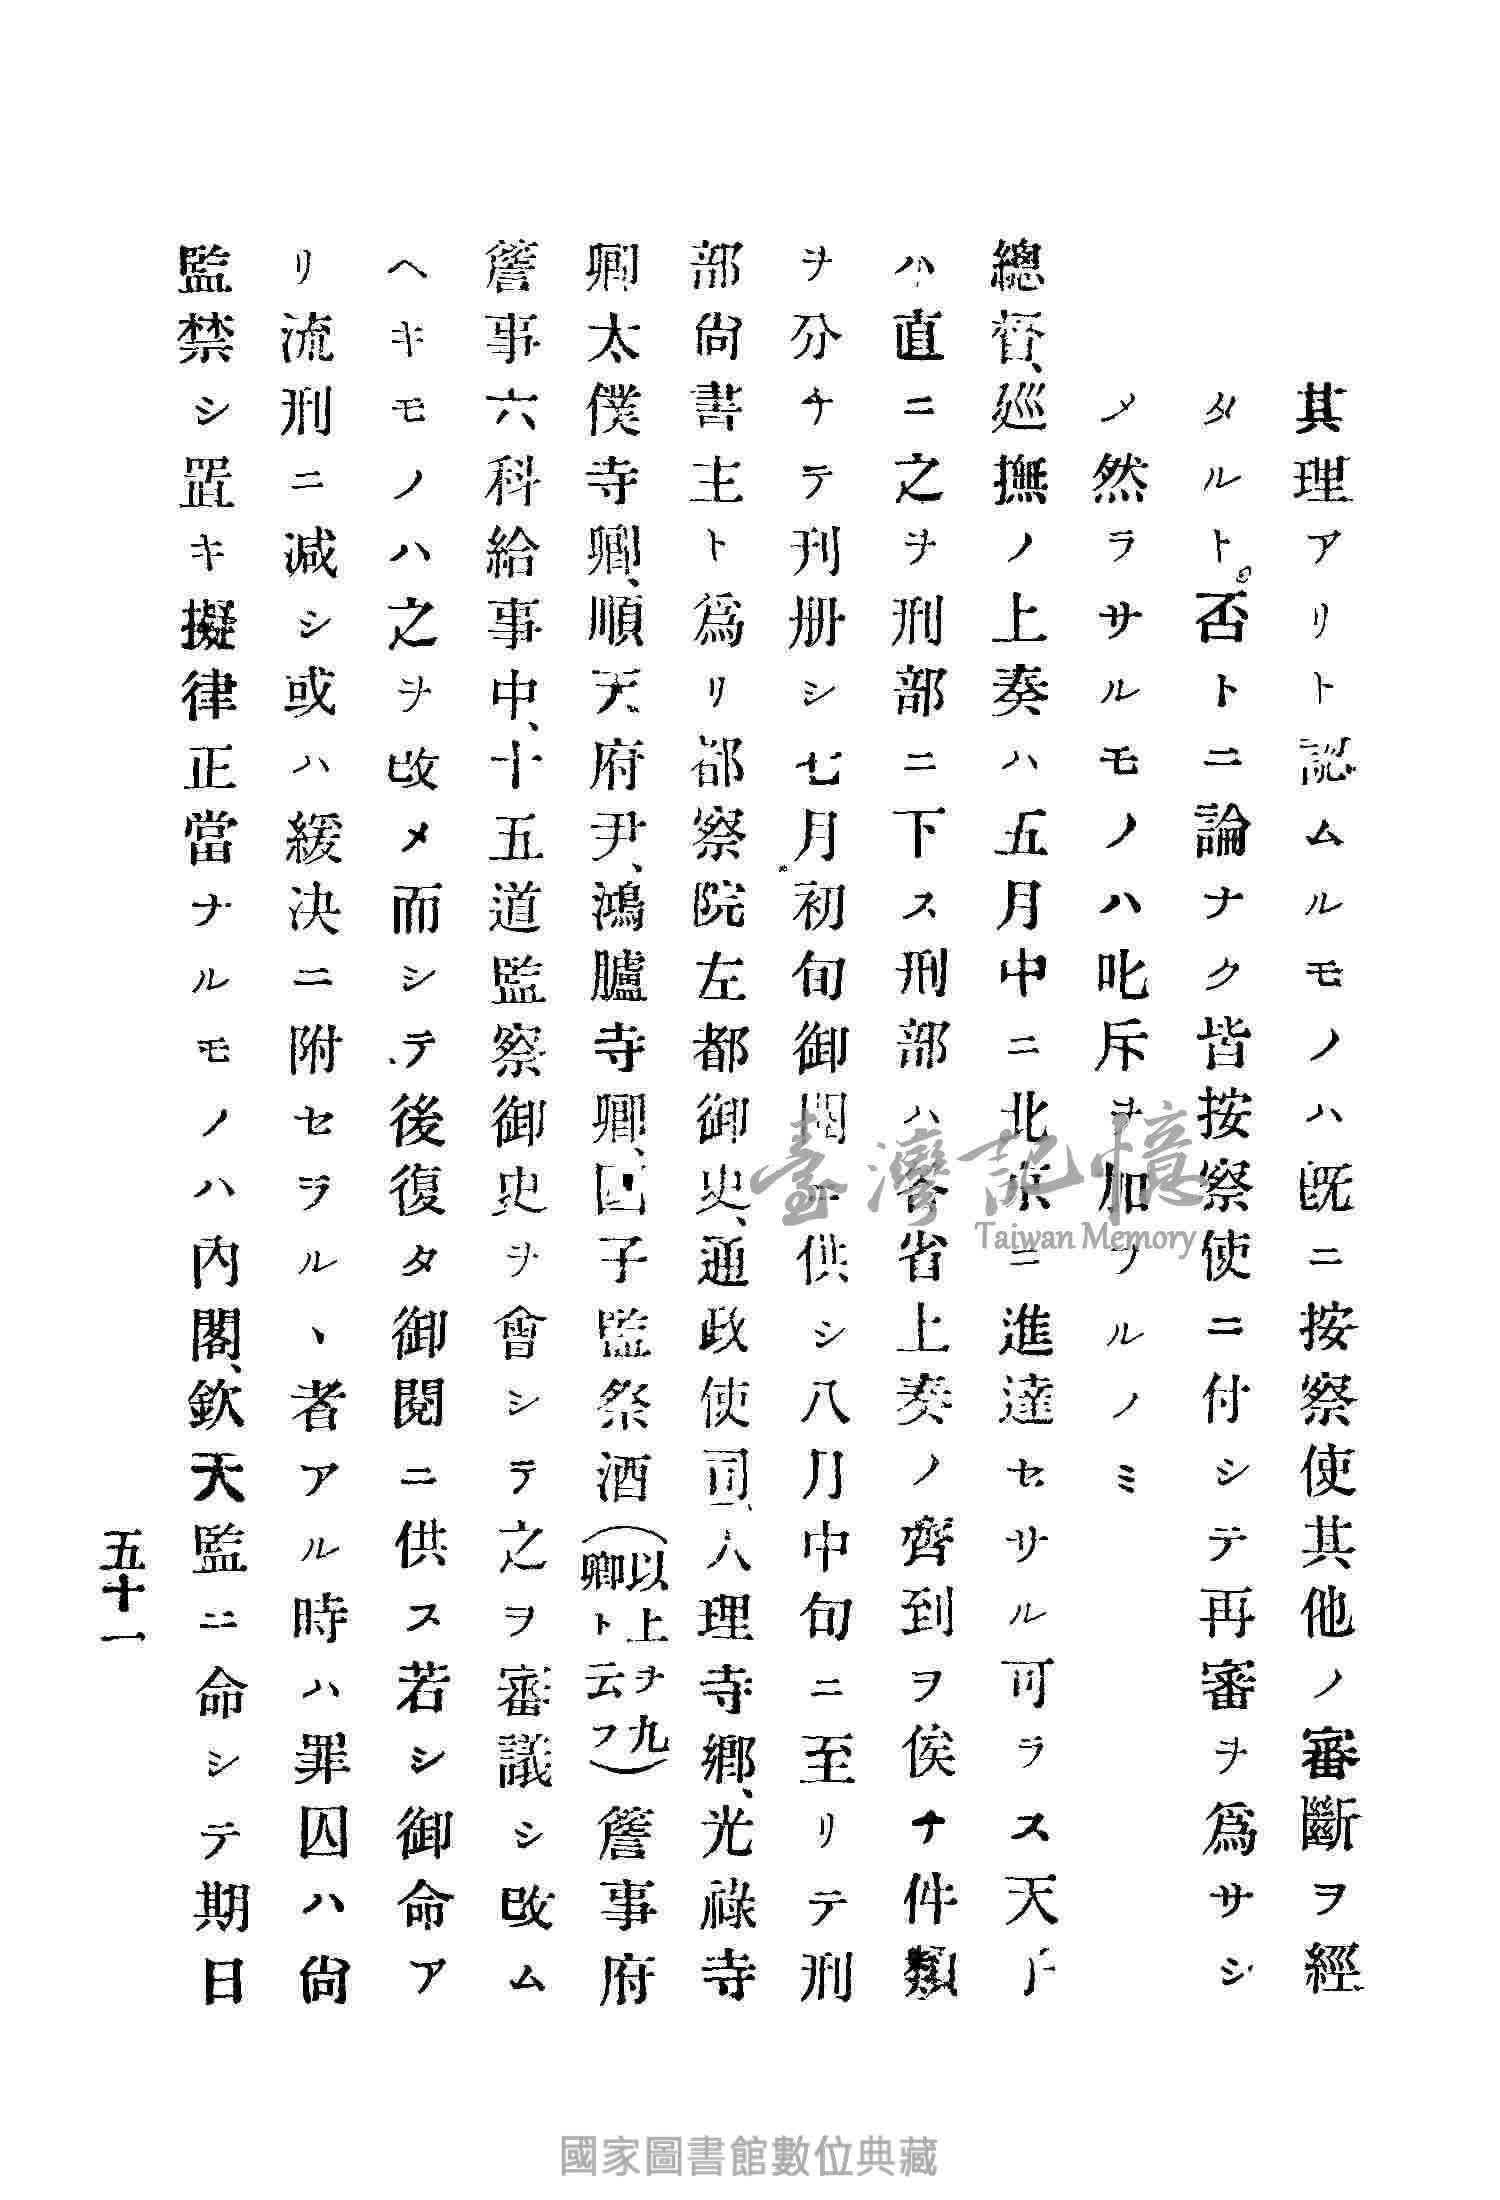 其理アリト認ムルモノハ既ニ按察使其他ノ審斷ヲ經
タルト否トニ論ナク皆按察使ニ付シテ再審ヲ爲サシ
メ然ラサルモノハ叱斥ヲ加フルノミ
總督、巡撫ノ上奏ハ五月中ニ北京ニ進達セサル可ラス天子
ハ直ニ之ヲ刑部ニ下ス刑部ハ各省上奏ノ齊到ヲ俟チ件類
ヲ分チテ刊册シ七月初旬御閲ニ供シ八月中旬ニ至リテ刑
部尙書主ト爲リ都察院左都御史、通政使司、大理寺鄕、光祿寺
卿太僕寺卿、順天府尹、鴻臚寺卿、國子監祭酒(以上ヲ九卿ト云フ)詹事府
詹事六科給事中、十五道監察御史ヲ會シテ之ヲ審議シ改ム
ヘキモノハ之ヲ改メ而シテ後復タ御閱ニ供ス若シ御命ア
リ流刑ニ減シ或ハ緩决ニ附セラルヽ者アル時ハ罪囚ハ尙
監禁シ置キ擬律正當ナルモノハ內閣、欽天監ニ命シテ期日
五十一
臺灣記憶
Taiwan Memory
國家圖書館數位典藏